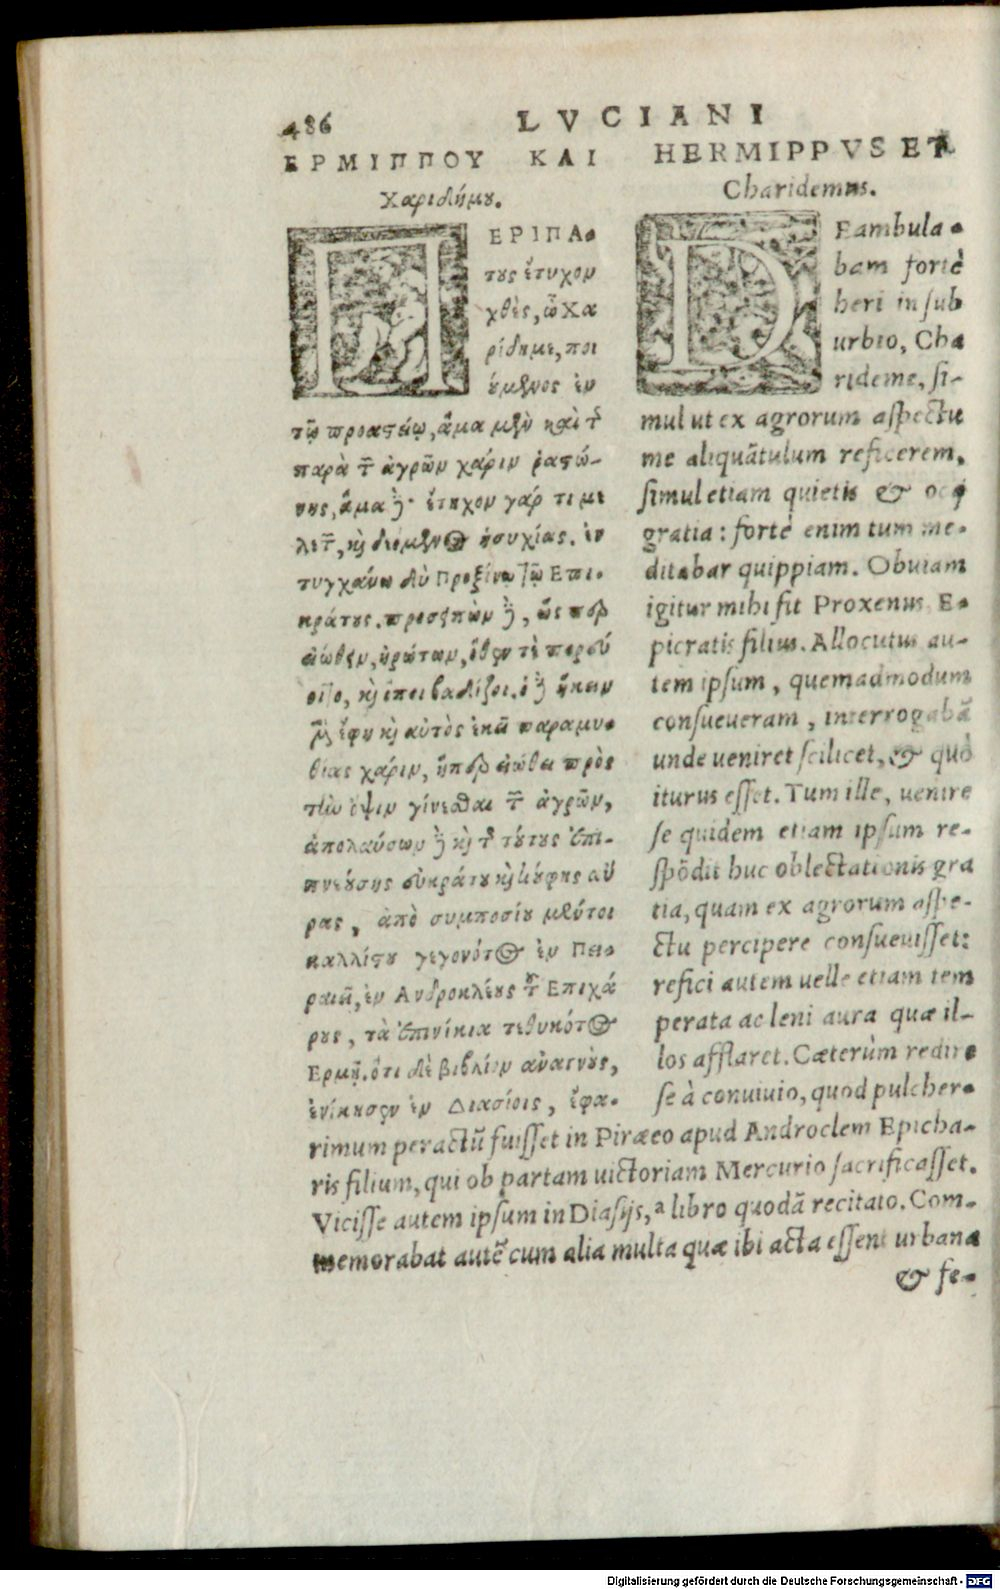 486
LVCIANI
ΕΡΜΙΠΠΟΥ ΚΑΙ
Χαριδήμου.
ΠΕΡΙΠΑ-
τους ἔτυχον
χθὲς, ὦ Χα
ρίδημε, ποι
ούμενος ἐν
τῷ προαστείῳ, ἅμα μὲν καὶ τ̃
παρὰ τ̃ ἀγρῶν χάριν ῥαστώ-
νης, ἅμα δὲ· ἔτυχον γάρ τι με
λετ̃, καὶ δεόμενος ἡσυχίας. ἐν
τυγχάνω δὴ Προξένῳ τῷ Ἐπι-
κράτους. προσειπὼν δὲ, ὥσπερ
εἰώθειν, ἠρώτων, ὅθεν τὲ πορεύ
οιτο, καὶ ὅποι βαδίζοι. ὁ δὲ ἥκειν
μὲν ἔφη καὶ αὐτὸς ἐκεῖ παραμυ-
θίας χάριν, ἥπερ εἰώθει πρὸς
τὴν ὄψιν γίνεσθαι τ̃ ἀγρῶν,
ἀπολαύσων δὲ καὶ τ̃ τούτους ἐπι-
πνεούσης εὐκράτου καὶ κούφης αὔ
ρας, ἀπὸ συμποσίου μέντοι
καλλίστου γεγονότος ἐν Πει-
ραιεῖ, ἐν Ἀνδροκλέους τ̃ Ἐπιχά
ρους, τὰ ἐπινίκια τεθυκότος
Ἑρμῇ. ὅτι δὲ βιβλίον ἀναγνοὺς,
ἐνίκησεν ἐν Διασίοις, ἔφα-
HERMIPPVS ET
Charidemus.
DEambula-
bam fortè
heri in sub
urbio, Cha
rideme, si-
mul ut ex agrorum aspectu
me aliquãtulum reficerem,
simul etiam quietis & ocij
gratia: fortè enim tum me-
ditabar quippiam. Obuiam
igitur mihi fit Proxenus E-
picratis filius. Allocutus au-
tem ipsum, quemadmodum
consueueram, interrogabã
unde ueniret scilicet, & quò
iturus esset. Tum ille, uenire
se quidem etiam ipsum re-
spõdit huc oblectationis gra
tia, quam ex agrorum aspe-
ctu percipere consueuisset:
refici autem uelle etiam tem
perata ac leni aura quæ il-
los afflaret. Cæterùm redire
se à conuiuio, quod pulcher-
rimum peractũ fuisset in Piræeo apud Androclem Epicha-
ris filium, qui ob partam uictoriam Mercurio sacrificasset.
Vicisse autem ipsum in Diasijs, a libro quodã recitato. Com-
memorabat autẽ cum alia multa quæ ibi acta essent urbana
& fe-
Digitalisierung gefördert durch die Deutsche Forschungsgemeinschaft - DFG